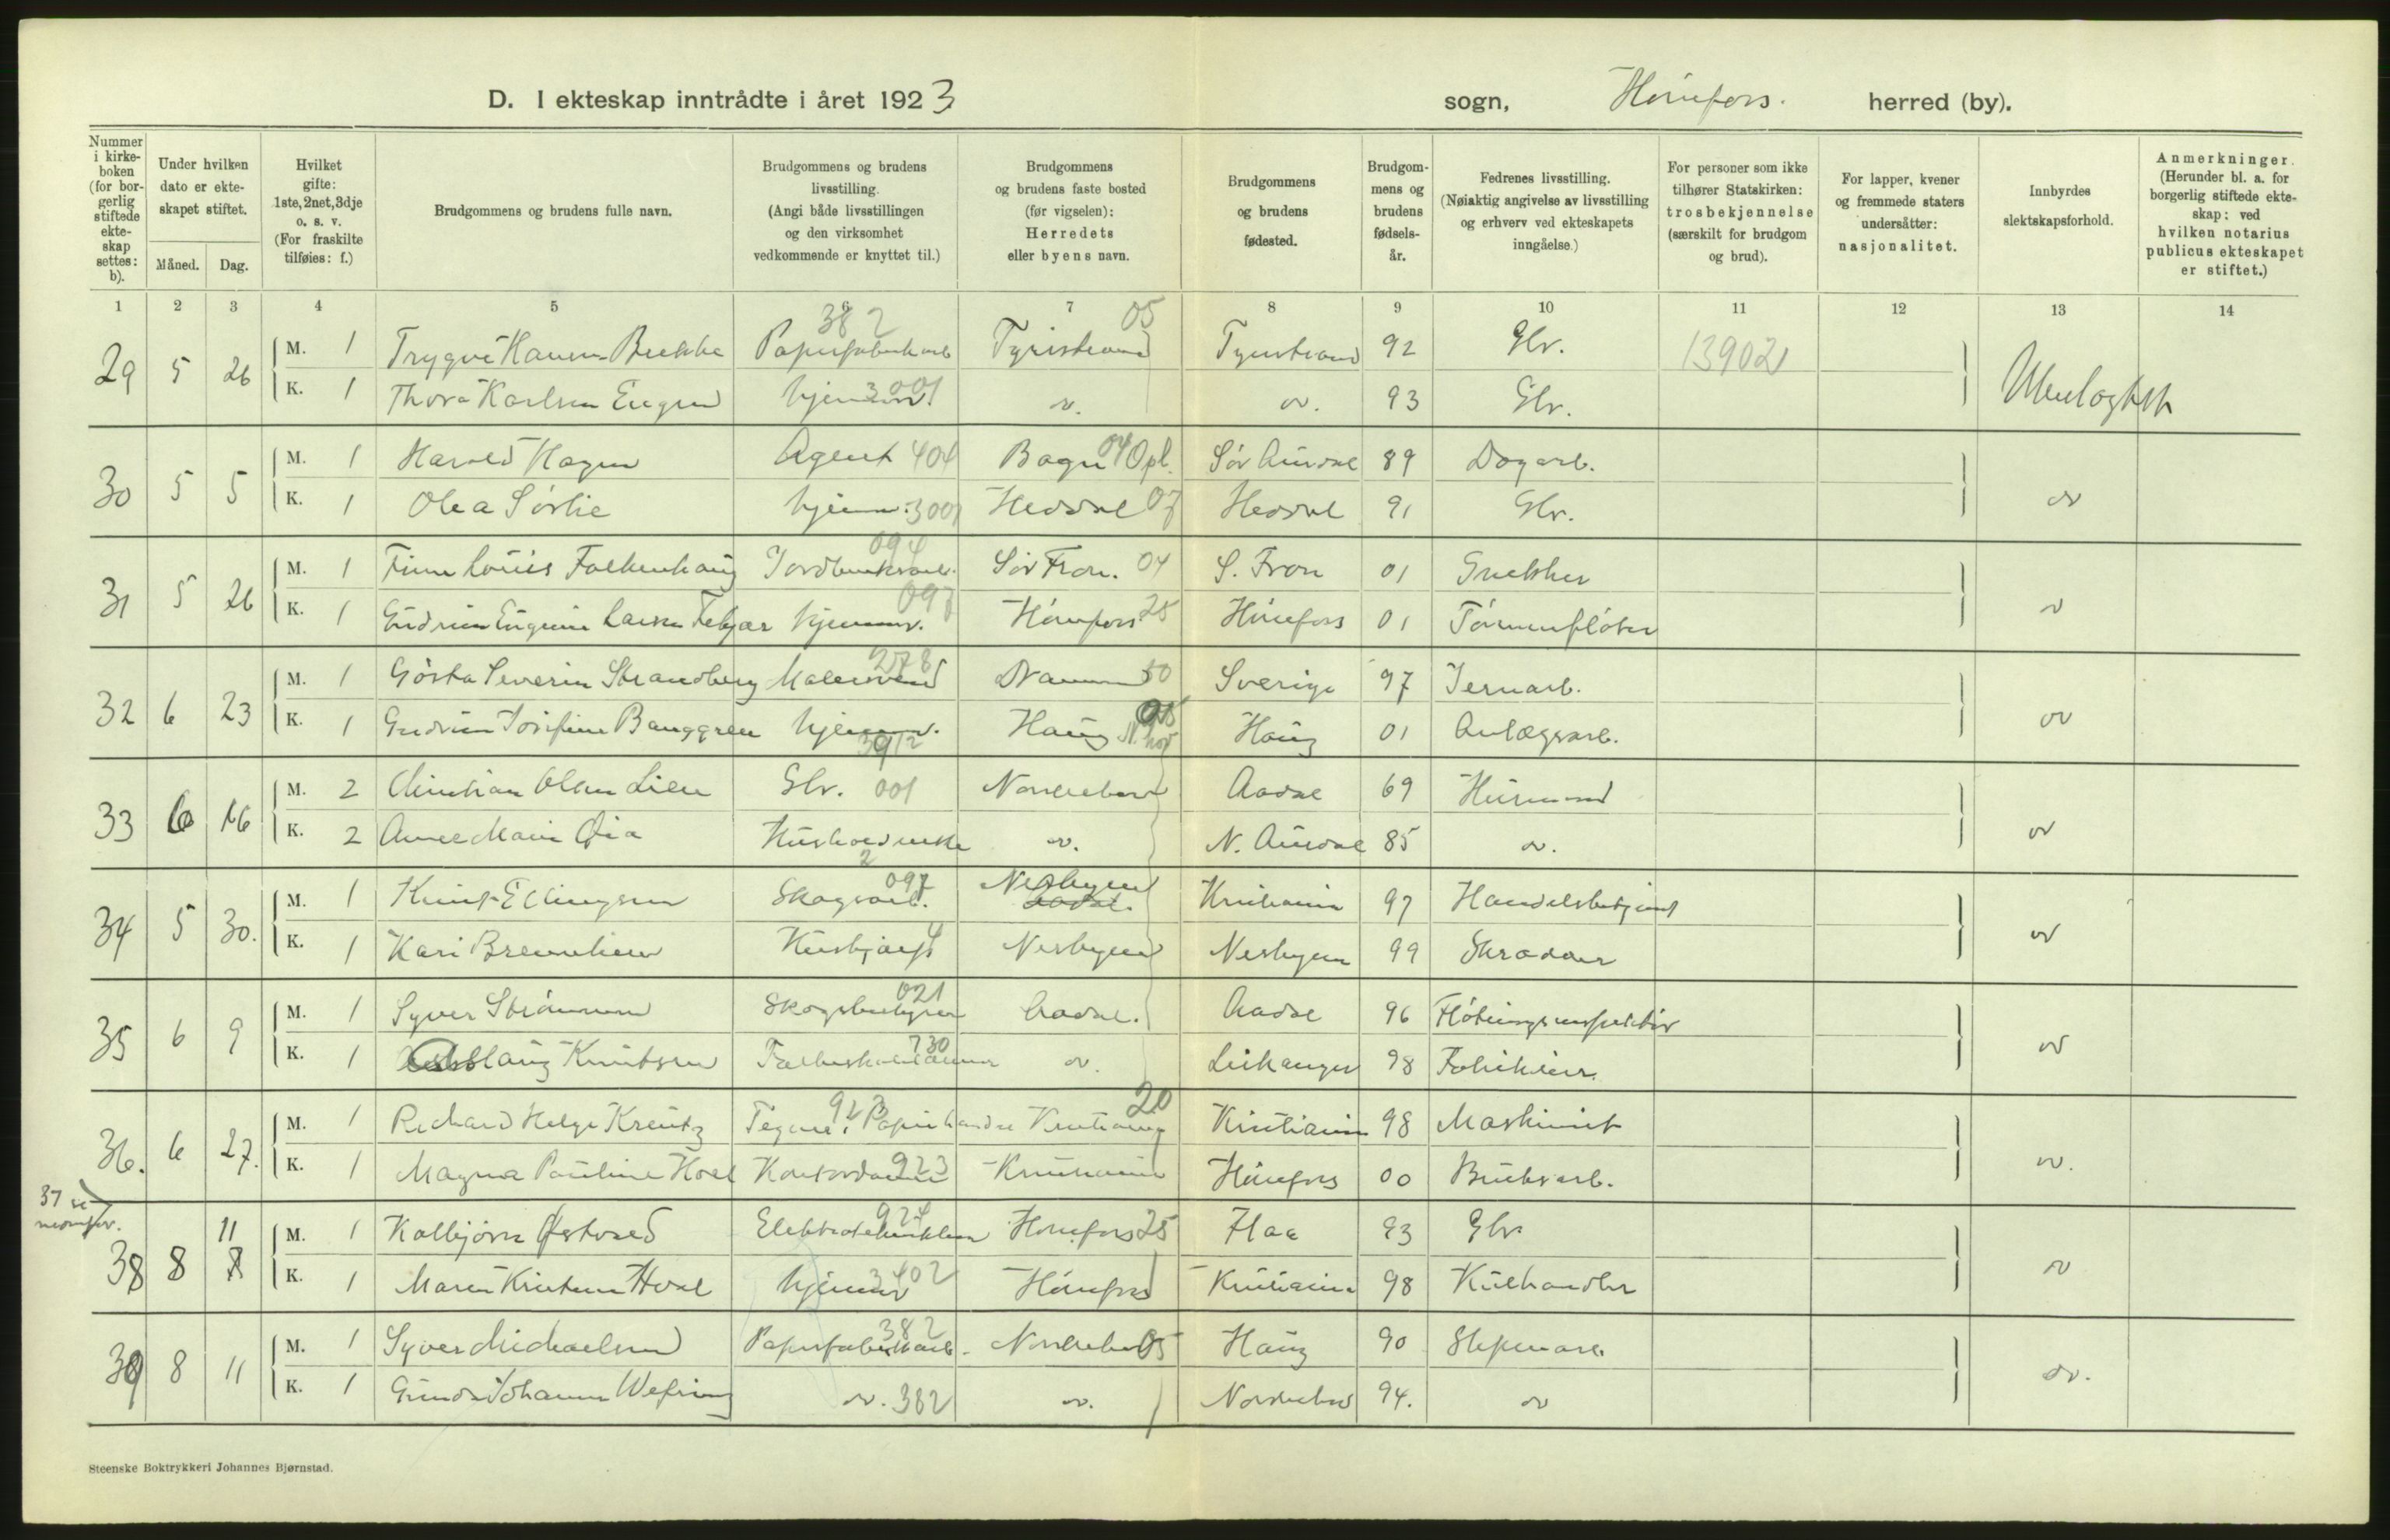 D. I ekteskap inntrådte i året 1923
sogn, Hönefoss. herred (by).
Nummer i kirke-boken (for bor-gerlig stiftede ekte-skap settes: b).
Under hvilken dato er ekte-skapet stiftet.
Måned. Dag.
Hvilket gifte: 1ste, 2net, 3dje o. s. v. (For fraskilte tilføies: f.)
Brudgommens og brudens fulle navn.
Brudgommens og brudens livsstilling. (Angi både livsstillingen og den virksomhet vedkommende er knyttet til.)
Brudgommens og brudens faste bosted (før vigselen): Herredets eller byens navn.
Brudgommens og brudens fødested.
Brudgom-mens og brudens fødsels-år.
Fedrenes livsstilling. (Nøiaktig angivelse av livsstilling og erhverv ved ekteskapets inngåelse.)
For personer som ikke tilhører Statskirken: trosbekjennelse (særskilt for brudgom og brud).
For lapper, kvener og fremmede staters undersåtter: nasjonalitet.
Innbyrdes slektskapsforhold.
Anmerkninger. (Herunder bl. a. for borgerlig stiftede ekte-skap: ved hvilken notarius publicus ekteskapet er stiftet.)
1 2 3 4 5 6 7 8 9 10 11 12 13 14
382 05
29 5 26 M. 1 Trygve Hansen Brekke Papirfabrikarb Tyristrand Tyristrand 92 Gbr. 139021 Ubeslægtet
K. 1 Thora Karlsen Engen hjemmev. 3001 " " 93 Gbr.
30 5 5 M. 1 Harald Hagen Agent 404 Bagn 04 Opl. Sör Aurdal 89 Dagarb. "
K. 1 Olea Sörlie hjemm. 3001 Hedal 07 Hedal 91 Gbr.
31 5 26 M. 1 Finn Louis Falkenhaug Jordbruksarb. 094 Sör Fron. 04 S. Fron 01 Snekker "
K. 1 Gudrun Eugenie Larsen hjemmev. 097 Hönefoss 25 Hönefoss 01 Tömmerflöter
32 6 23 M. 1 Gösta Severin Strandberg Malersvend 278 Drammen 50 Sverige 97 Jernarb. "
K. 1 Gudrun Josefine Banggren hjemmev. Haug 05 Haug 01 Anlægsarb.
33 6 16 M. 2 Christian Olsen Lien Gbr. 001 Norderhov Aadal 69 Husmand "
K. 2 Anne Marie Öia Husholderske " N. Aurdal 85 "
34 5 30. M. 1 Knut Ellingsen Skogsarb. 097 Nesbyen Kristiania 97 Handelsbetjent "
K. 1 Kari Brenneheien Husbjælp Nesbyen Nesbyen 99 Skrædder
35 6 9 M. 1 Syver Strömmen Skogsbestyrer 021 Aadal. Aadal 96 Flötningsinspektör "
K. 1 Aslaug Knutsen 730 " Leikanger 98 Fabrikeier.
36. 6 27. M. 1 Richard Helge Kreutz Tegner, Papirhandel Kristiania 20 Kristiania 98 Maskinist "
K. 1 Magna Pauline Hoel Kontordame 923 Kristiania Hönefoss 00 Bruksarb.
37 se nedenfor.
38 8 11 M. 1 Kolbjörn Östvold Elektrotekniker 924 Hönefoss 25 Flaa 93 Gbr "
K. 1 Maren Kristine Hoel hjemmev 3402 Hönefoss Kristiania 98 Kulhandler
39 8 11 M. 1 Syver Michaelsen Papirfabrikarb. 382 Norderhov 05 Haug 90 Slipearb. "
K. 1 Gunda Johanne Wefring " 382 " Norderhov 94. "
Steenske Boktrykkeri Johannes Bjørnstad.